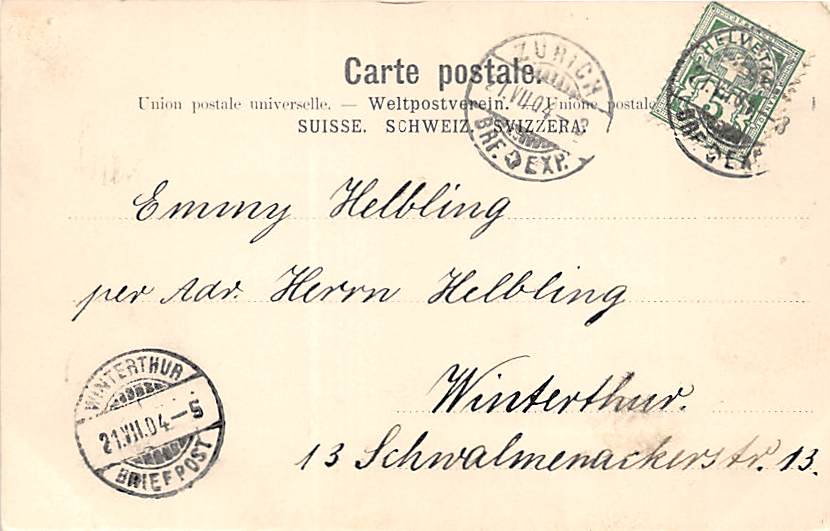 Carte postale.
Union postale universelle. — Weltpostverein. — Unione postale
SUISSE. SCHWEIZ. SVIZZERA.
ZÜRICH
21.VII.04.-8
BRF. EXP.
HELVETIA
5
BRF. EXP.
Emmy Helbling
per Adr. Herrn Helbling
Winterthur.
13 Schwalmenackerstr. 13.
WINTERTHUR
21.VII.04-5
BRIEFPOST